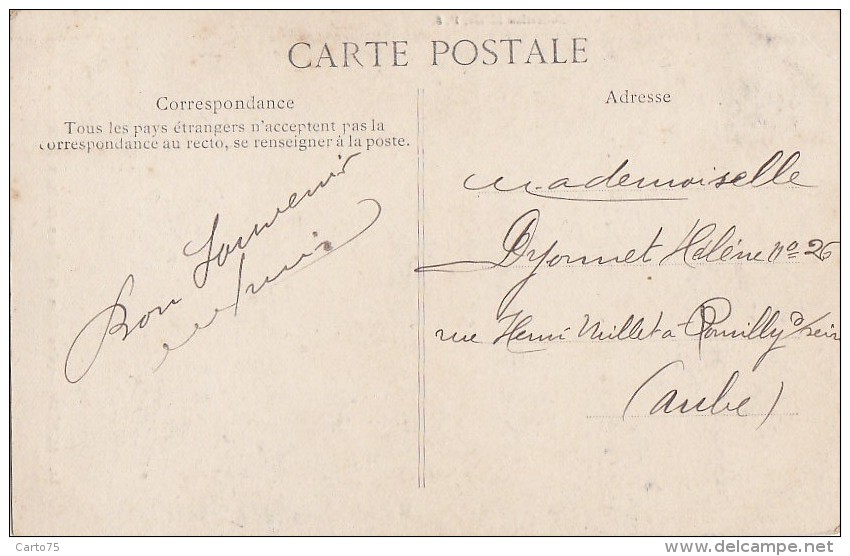 CARTE POSTALE
Correspondance
Tous les pays étrangers n'acceptent pas la
correspondance au recto, se renseigner à la poste.
Bon Souvenir
Adresse
Mademoiselle
Dyonnet Hélène no 26
rue Henri Millet a Romilly s/sein
(Aube)
Carto75
www.delcampe.net